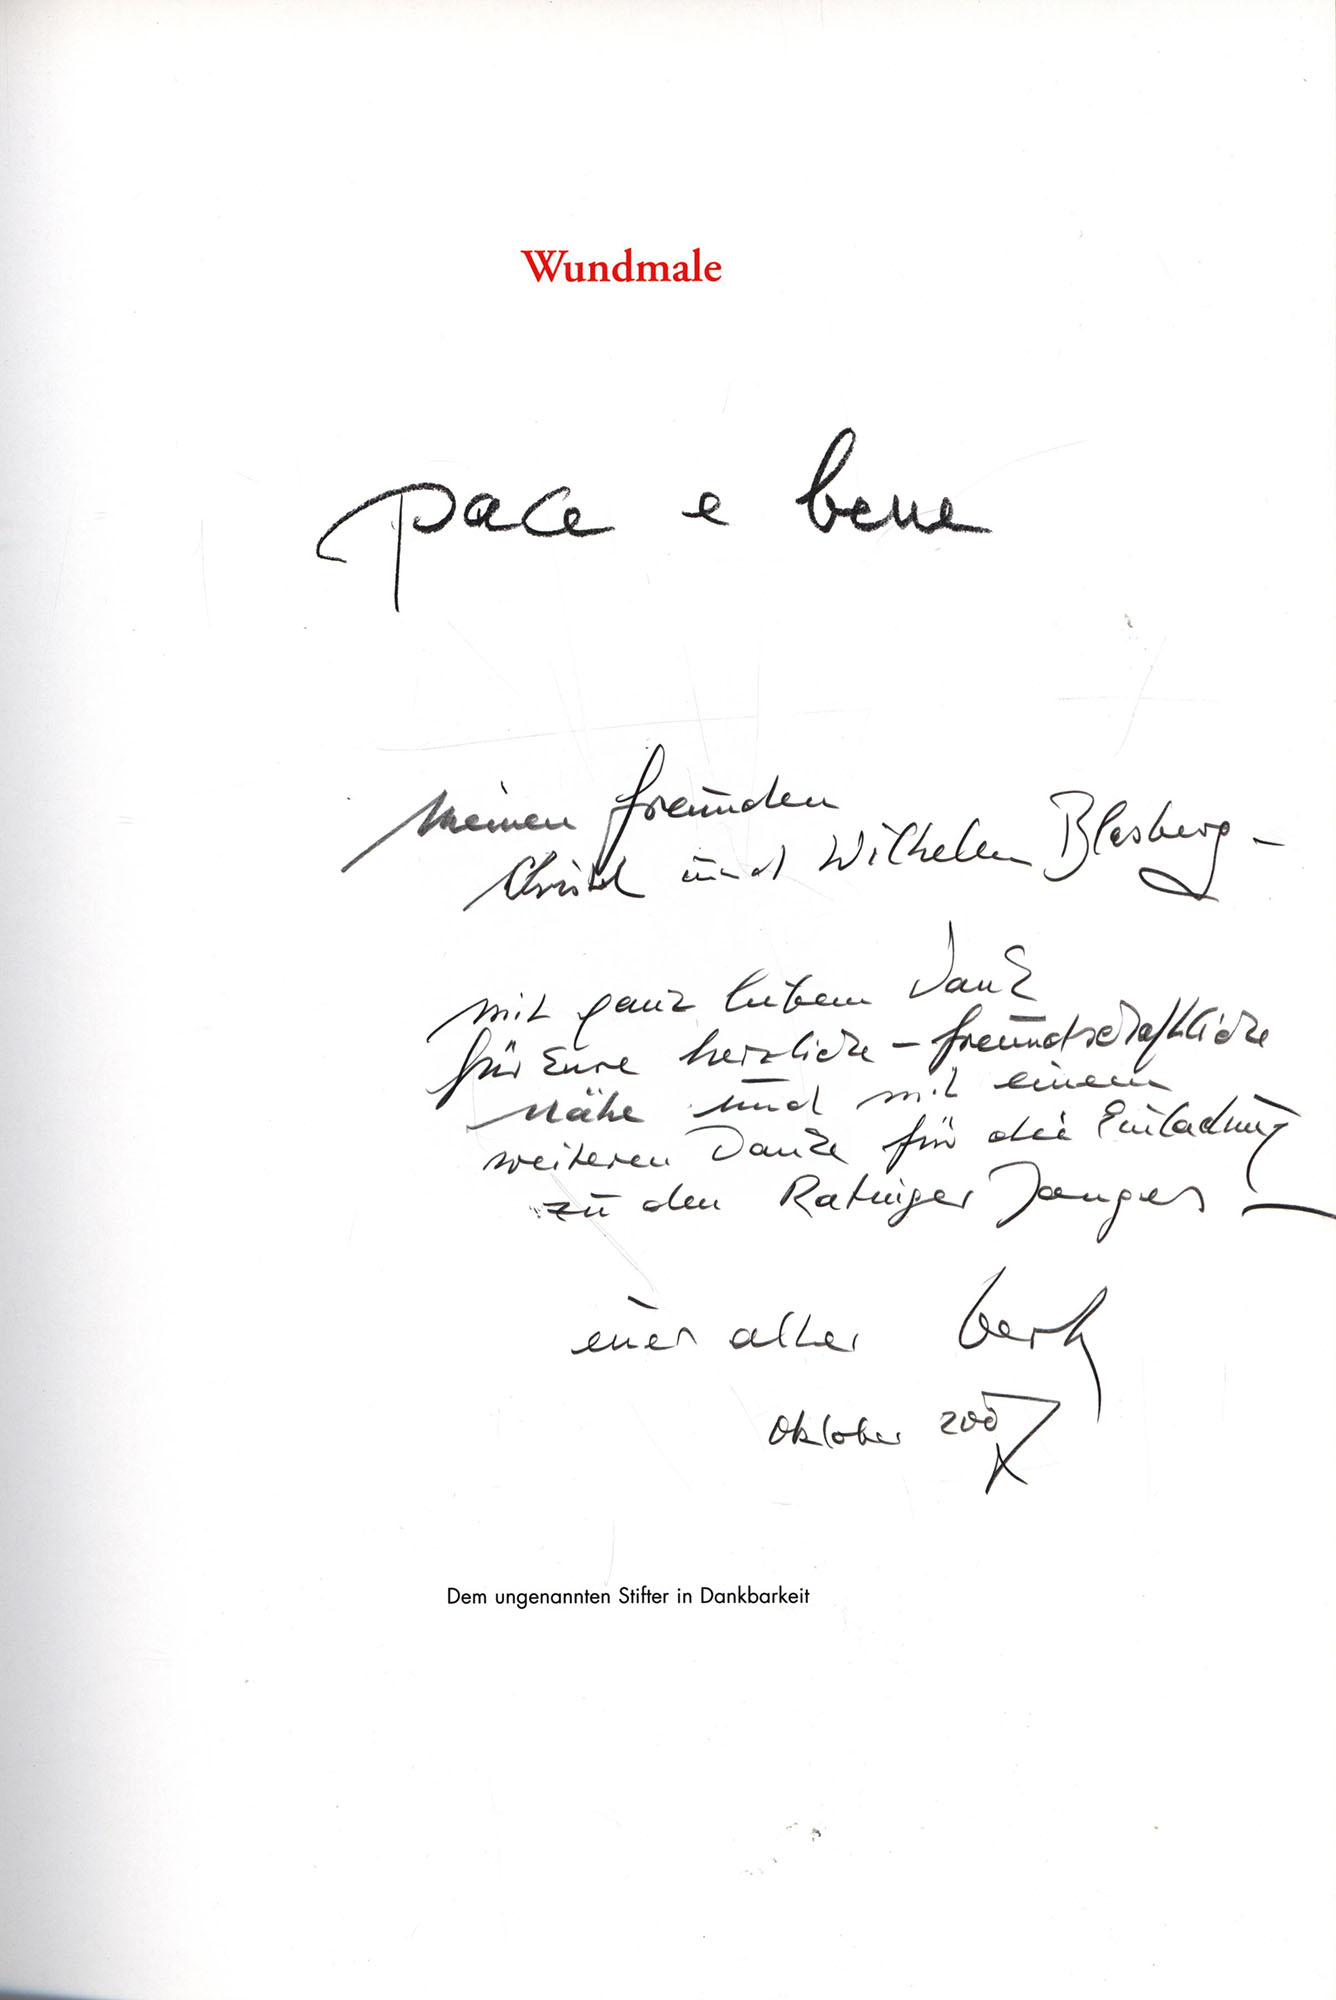 Wundmale
pace e bene
Meinen Freunden
Christel und Wilhelm Blasberg –
mit ganz liebem Dank
für Eure herzliche – freundschaftliche
Nähe und mit einem
weiteren Danke für die Einladung
zu den Ratinger Janges –
euer alter berk
Oktober 2007
Dem ungenannten Stifter in Dankbarkeit